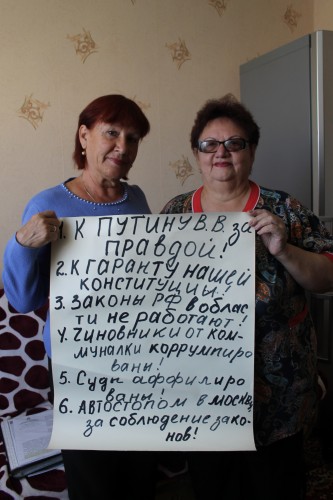 1. К ПУТИНУ В.В. за
ПРАВДОЙ!
2. К ГАРАНТУ НАШЕЙ
КОНСТИТУЦИИ!
3. ЗАКОНЫ РФ в облас
ти не работают!
4. Чиновники от ком-
муналки коррумпиро
ваны!
5. Суды аффилиро
ваны!
6. АВТОСТОПОМ в МОСКВУ
за соблюдение зако-
нов!